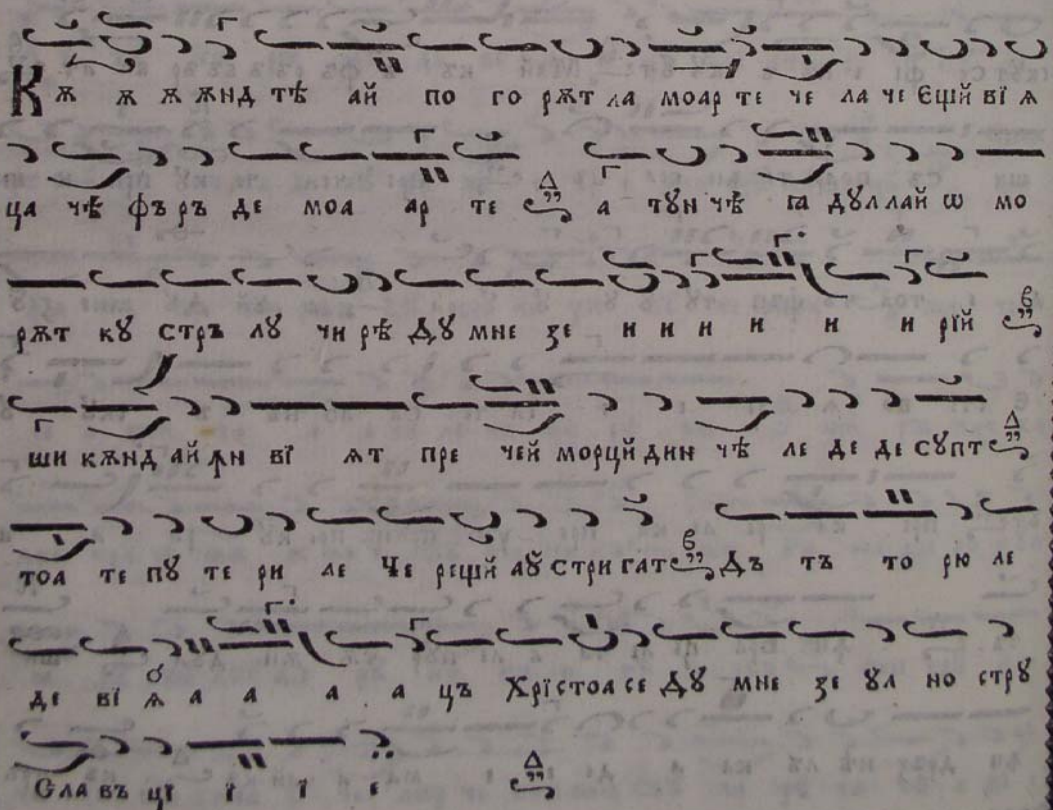 Кѫ ѫ ѫ ѫнд тѣ ай по го рѫт ла моар те че ла че Єщй вї ѧ
ца чѣ фъ ръ де моа ар те а тꙋн чѣ ꙗ дꙋл лай ѡ мо
рѫт кꙋ стръ лꙋ чи рѣ Дꙋ мне зе и и и и и и рїй
ши кѫнд ай ꙟн вї ѧт пре чей морцй дин чѣ ле де де сꙋпт
тоа те пꙋ те ри ле Че рещй аꙋ стри гат Дъ тъ то рю ле
де вї ѧ а а а а цъ Хрїстоасе Дꙋ мне зе ꙋл но стрꙋ
Сла въ цї ї ї е